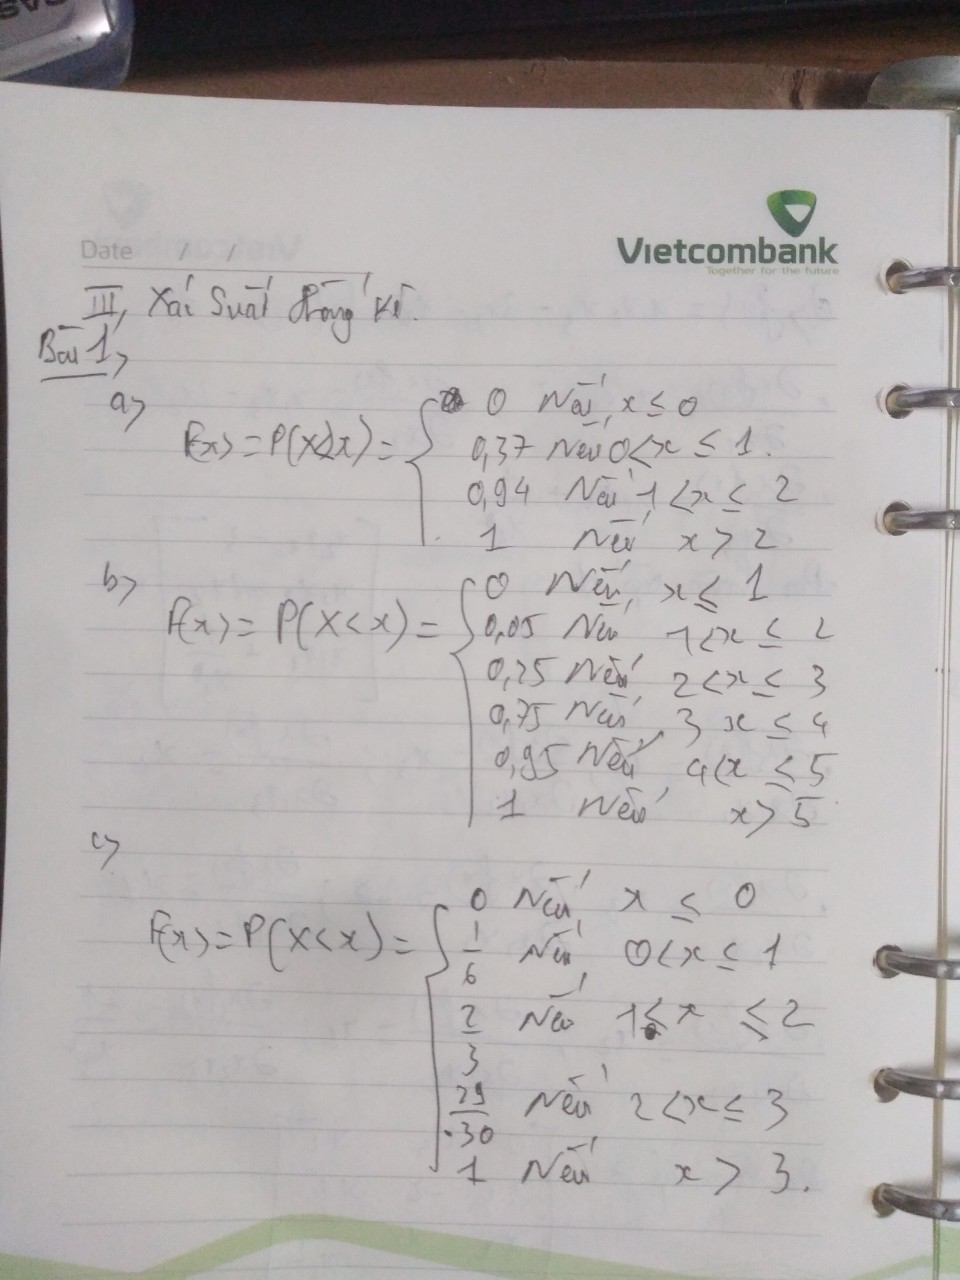 Date / /
Vietcombank
Together for the future
III, Xác Suất thống kê.
Bài 1,
a)
F(x) = P(X<x) =
0 Nếu x ≤ 0
0,37 Nếu 0<x ≤ 1.
0,94 Nếu 1<x ≤ 2
1 Nếu x > 2
b)
F(x) = P(X<x) =
0 Nếu x ≤ 1
0,05 Nếu 1<x ≤ 2
0,25 Nếu 2<x ≤ 3
0,75 Nếu 3 x ≤ 4
0,95 Nếu 4<x ≤ 5
1 Nếu x > 5
c)
F(x) = P(X<x) =
0 Nếu x ≤ 0
1/6 Nếu 0<x ≤ 1
2/3 Nếu 1≤x ≤ 2
29/30 Nếu 2<x ≤ 3
1 Nếu x > 3.